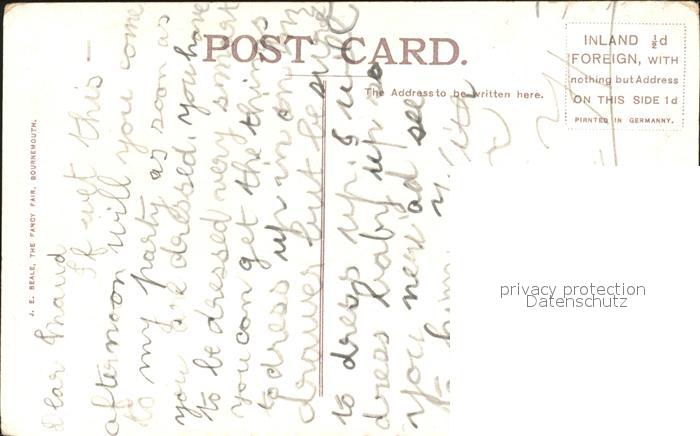 POST CARD.
The Address to be written here.
INLAND ½d
FOREIGN, WITH
nothing but Address
ON THIS SIDE 1d
PIRNTED IN GERMANNY.
J. E. BEALE, THE FANCY FAIR, BOURNEMOUTH.
Dear Maud
If wet this -
afternoon will you come
to my party as soon as
you are dressed, you have
to be dressed very smart
you can get the things
to dress up in on my
drawer but be sure
to dress up, & will
dress baby up so
you need
him
privacy protection
Datenschutz